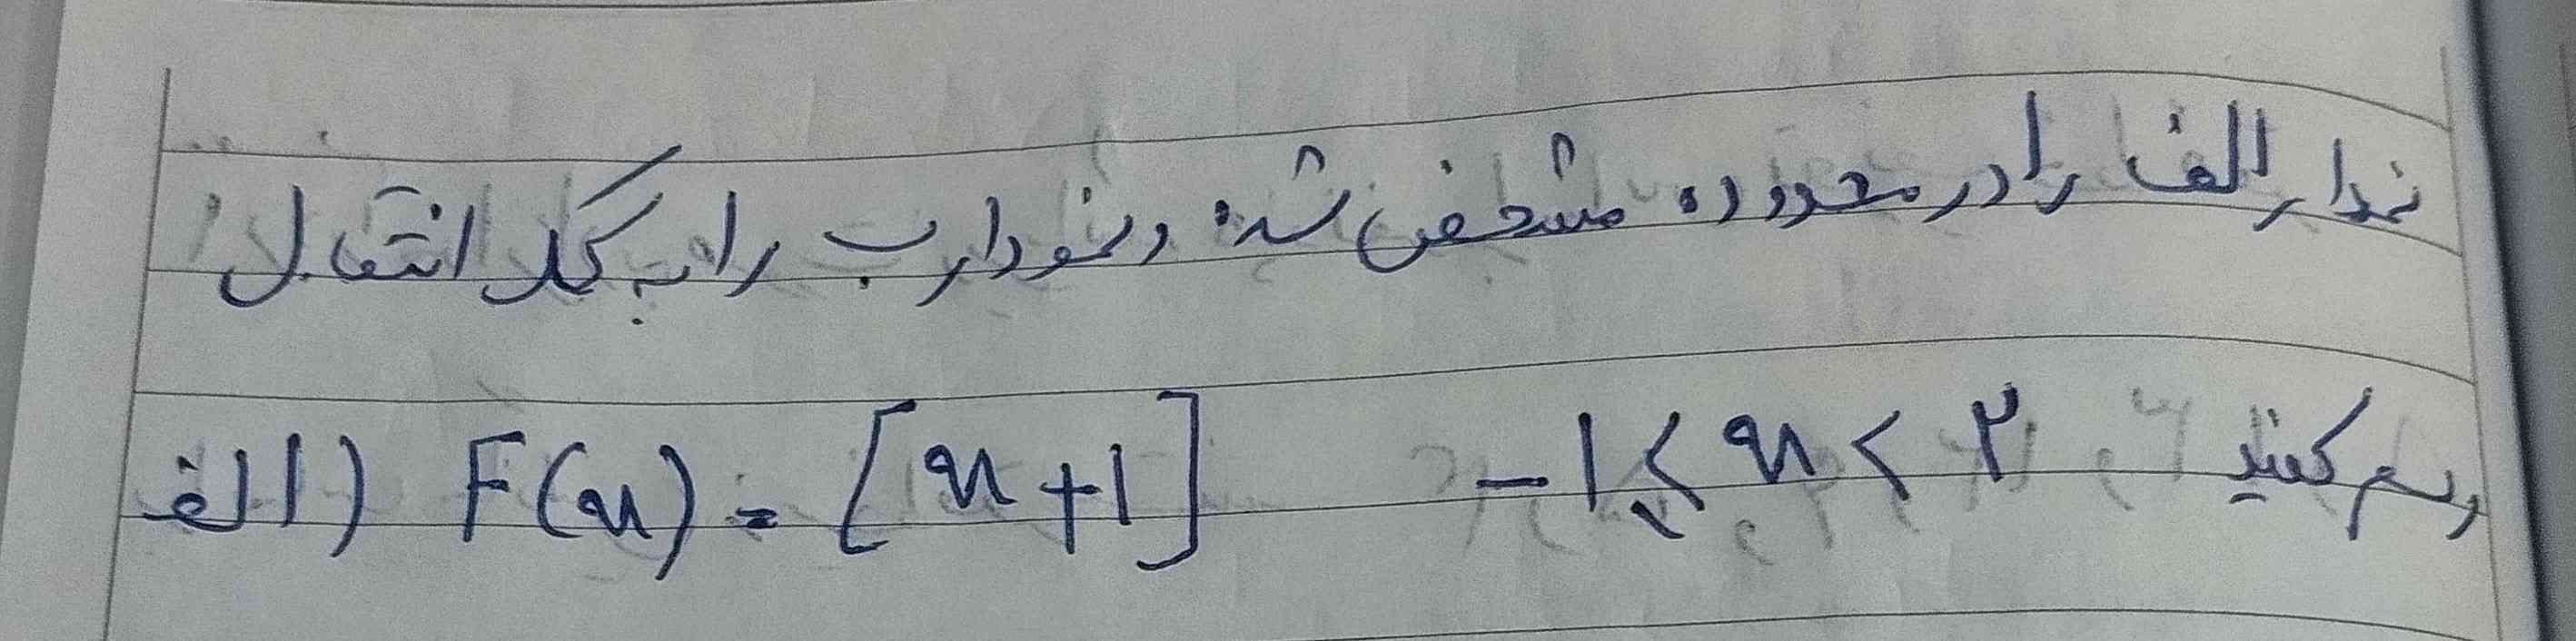 نمدار الف را در محدوده مشخص شده و نمودار ب را به کمک انتقال
رسم کنید
الف) F(x) = [x+1]   -1 ≤ x < ۲